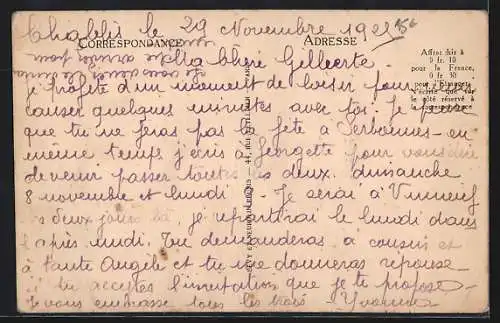 Chablis le 29 Novembre 192
CORRESPONDANCE
ADRESSE
Affranchir à
0 fr. 10
pour la France,
0 fr. 30
pour l'Étranger
N'écrire que sur
le côté réservé à
la correspondance
Ma Chère Gilberte.
Je profite d'un moment de loisir pour
causer quelques minutes avec toi. Je pense
que tu ne feras pas la fête à Serbonnes - en
même temps j'écris à Georgette pour vous dire
de venir passer toutes les deux dimanche
8 novembre et lundi. Je serai à Vinneuf
deux jours là je repartirai le lundi dans
l'après midi. Tu demanderas à cousin et
à tante Angèle et tu me donneras réponse
si tu acceptes l'invitation que je te propose
Je vous embrasse tous les trois Yvonne